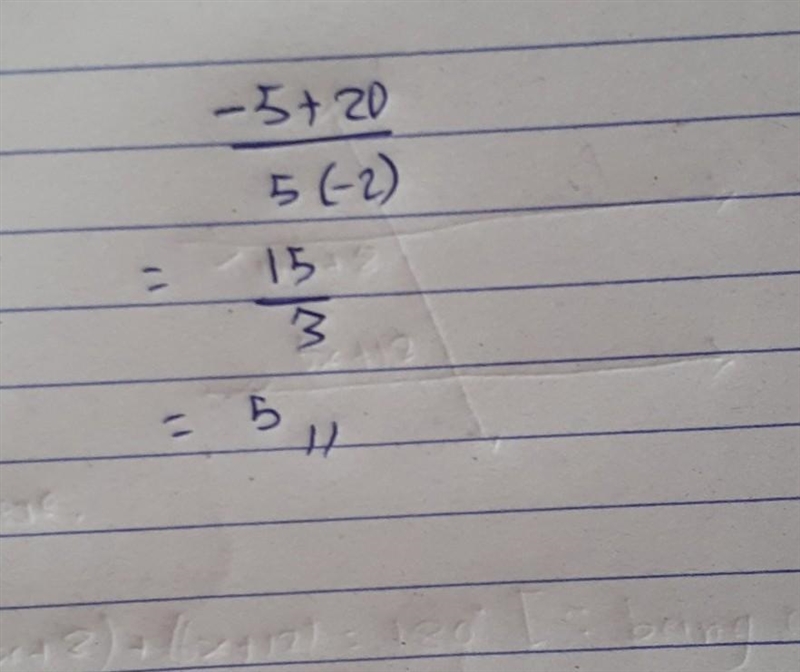 -5+20
5(-2)
= 15
3
= 5 //